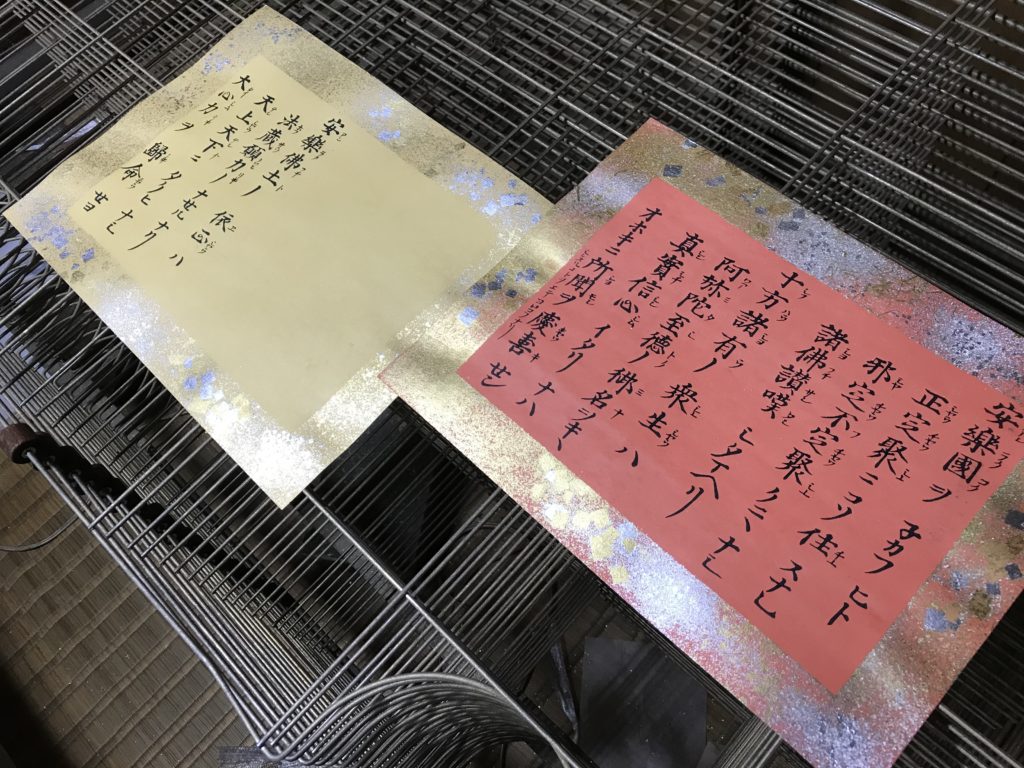 安樂國ヲ子カフヒト
正定聚ニコソ住スナレ
邪定不定聚クニヽナシ
諸佛讃嘆シタマヘリ
十方諸有ノ衆生ハ
阿弥陀至德ノ御名ヲキヽ
真實信心イタリナハ
オホキニ所聞ヲ慶喜セン
安樂佛土ノ依正ハ
法蔵願力ノナセルナリ
天上天下ニタクヒナシ
大心力ヲ歸命セヨ